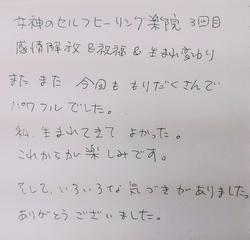 女神のセルフヒーリング楽院 3回目
感情解放&祝福&生まれ変わり
またまた 今回も もりだくさんで
パワフルでした。
私、生まれてきて よかった。
これからが楽しみです。
そして、いろいろな気づきがありました。
ありがとうございました。